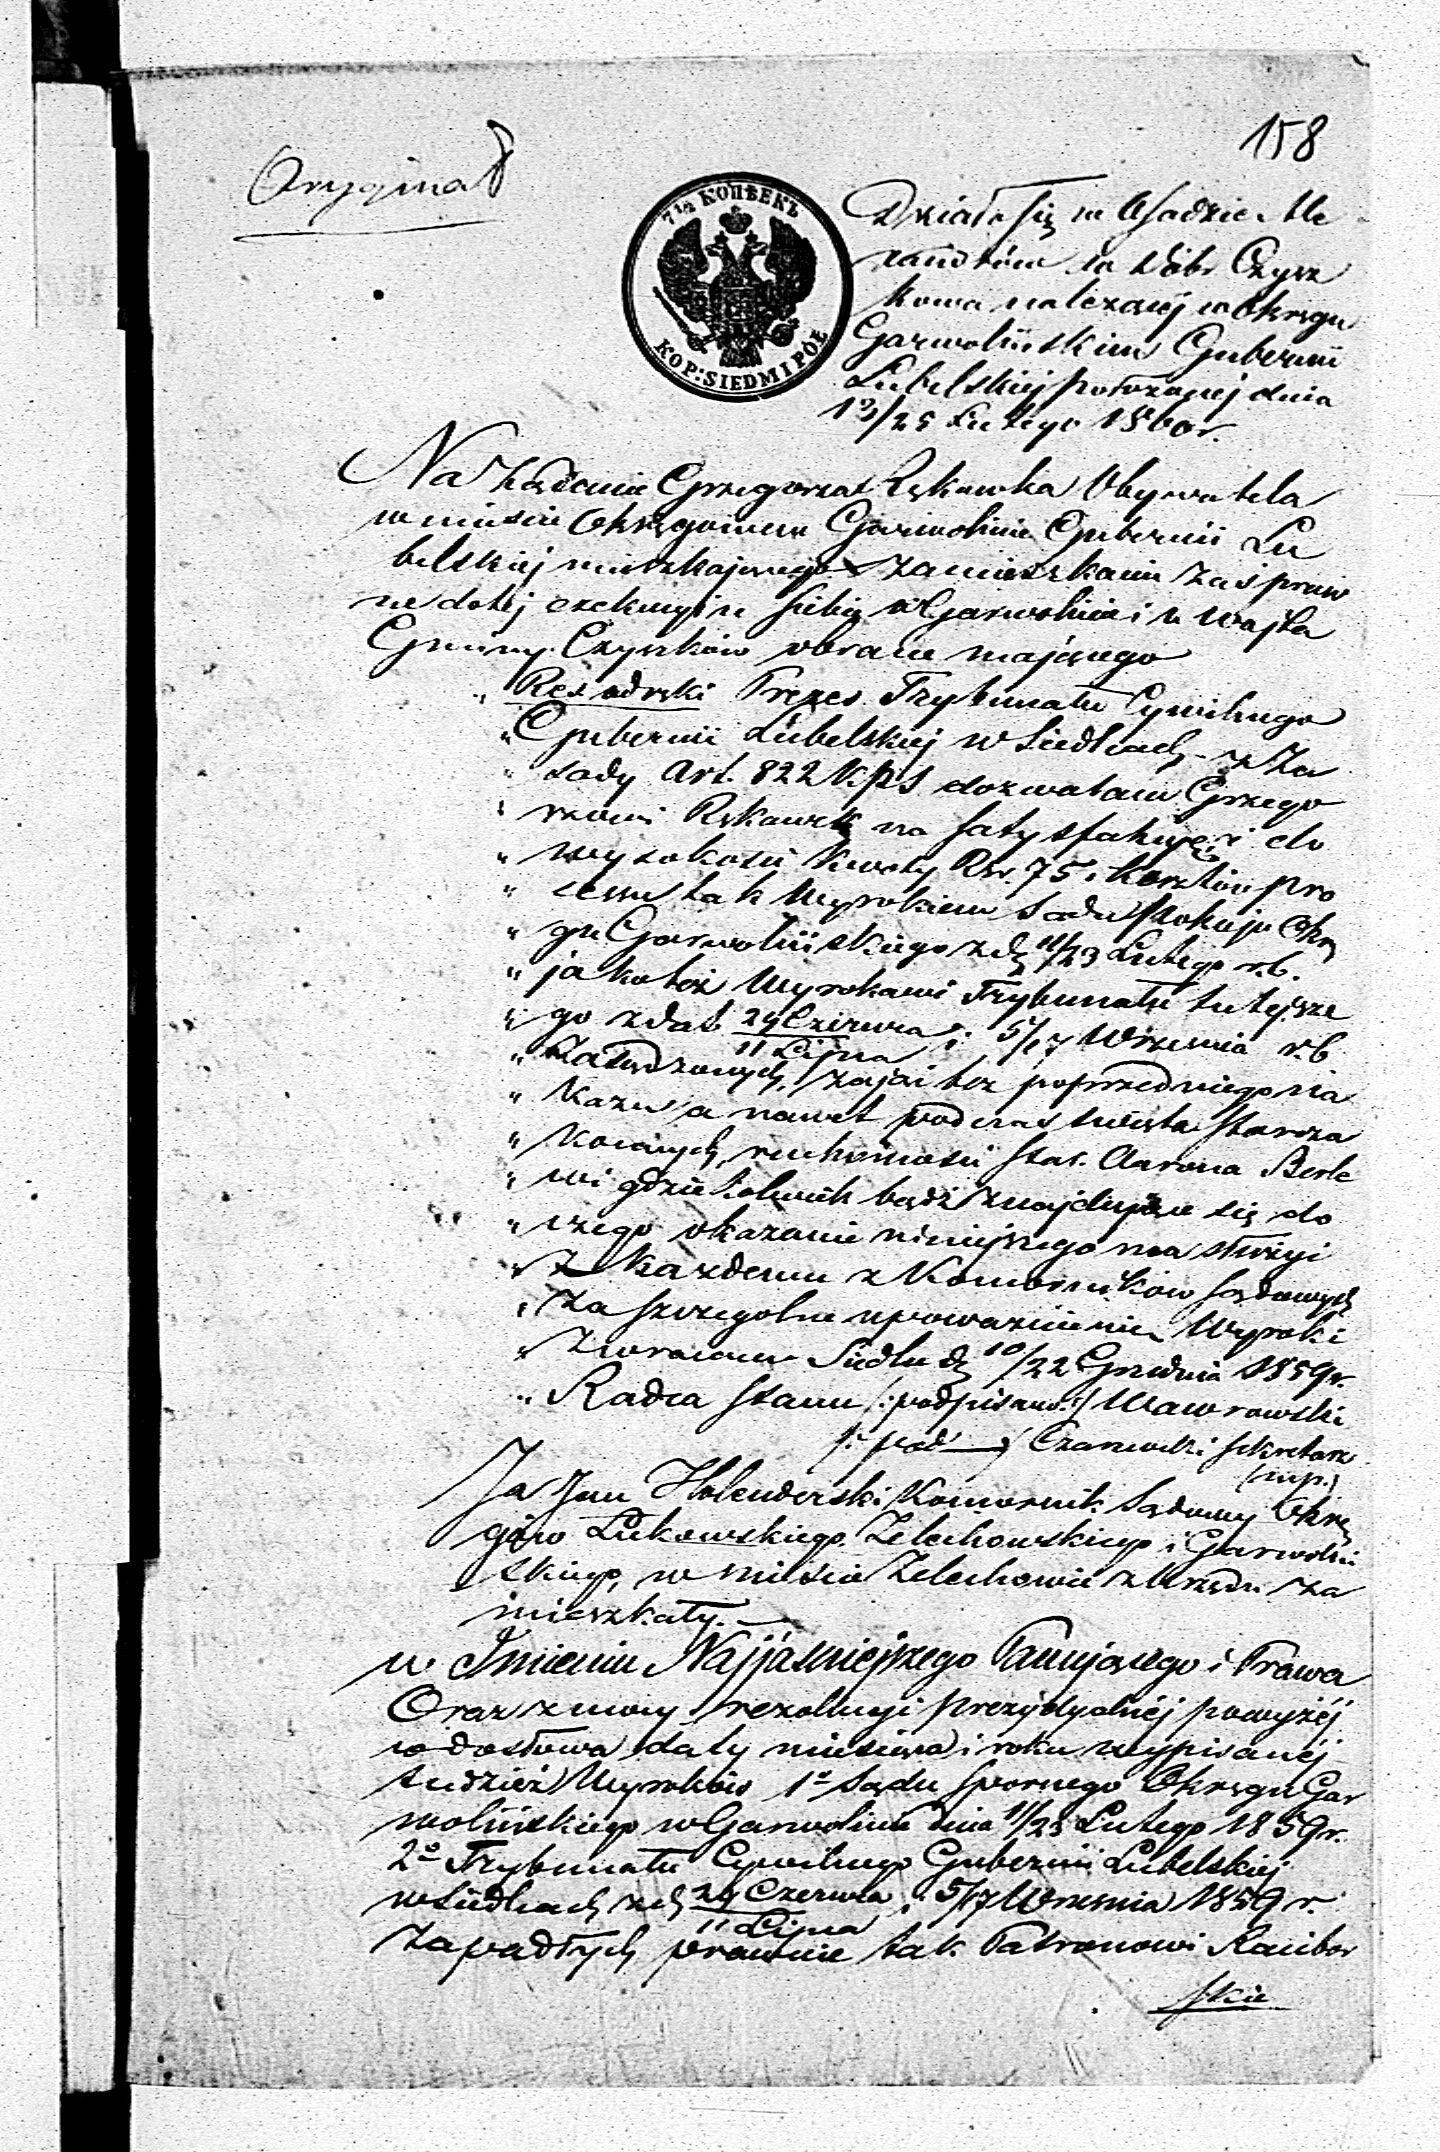 158
Oryginał
7½ КОПѢЕКЪ
KOP: SIEDM I PÓŁ
Działo się w Osadzie Ale
xandrów do Dóbr Czysz
kowa należącej w Okręgu
Garwolińskim Gubernii
Lubelskiej położonej dnia
13/25 Lutego 1860 r.
Na żądanie Grzegorza Rękawka Obywatela
w mieście Okręgowem Garwolinie Gubernii Lu
belskiej mieszkającego zamieszkanie zaś praw
ne do tej exekucyi u siebie w Garwolinie i u Wójta
Gminy Czyszków obrane mającego
" Prezes Trybunału Cywilnego
" Gubernii Lubelskiej w Siedlcach z Za
" sady Art. 822 K.P.S dozwalam Grzego
" rzowi Rękawek na satysfakcyę i do
" wysokości kwoty Rsr. 75 i kosztów pro
" cessu tak Wyrokiem Sądu Pokoju Okrę
" gu Garwolińskiego z d. 11/23 Lutego r.b.
" jakoteż Wyrokami Trybunału tutejsze
" go z dat 29 Czerwca/11 Lipca i 5/17 Września r.b
" zasądzonych, zająć bez poprzedniego na
" kazu a nawet podczas święta Staroza
" konnych ruchomości Star. Aarona Berle
" wi gdziekolwiek bądź znajdujące się do
" czego okazanie niniejszego ma służyć
" Każdemu z Komorników Sądowych
" za szczególne upoważnienie Wyroki
" zwracam Siedlce d. 10/22 Grudnia 1859 r.
" Radca Stanu /:podpisano:/ Wawrowski
/: pod :/ Czarnecki Sekretarz
(mp.)
Ja Jan Holenderski Komornik Sądowy Okrę
gów Łukowskiego Żelechowskiego i Garwoliń
skiego, w mieście Żelechowie z Urzędu za
mieszkały.
w Imieniu Najjaśniejszego Panującego i Prawa
Oraz z mocy rezolucyi prezydyalnéj powyżéj
co do słowa daty miesiąca i roku wypisanéj
tudzież Wyroków 1º Sądu Spornego Okręgu Gar
wolińskiego w Garwolinie dnia 11/23 Lutego 1859 r.
2º Trybunału Cywilnego Gubernii Lubelskiej
w Siedlcach z d. 29 Czerwca/11 Lipca i 5/17 Września 1859 r.
zapadłych prawnie tak Patronowi Racibor
skie